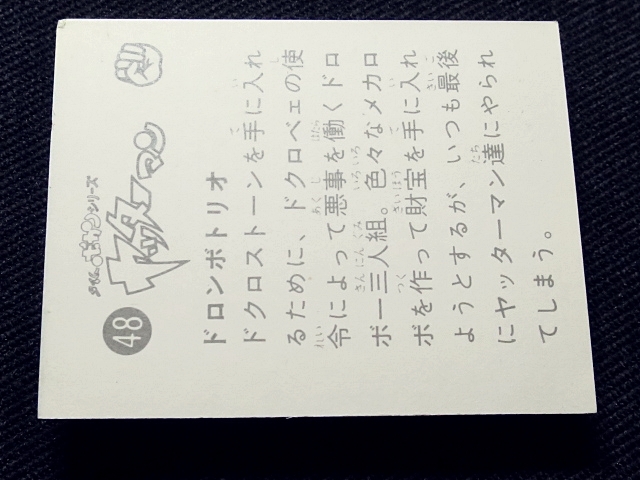 48
タイムボカンシリーズ
ヤッターマン
ドロンボトリオ
ドクロストーンを手に入れ
るために、ドクロベェの使
令によって悪事を働くドロ
ボー三人組。色々なメカロ
ボを作って財宝を手に入れ
ようとするが、いつも最後
にヤッターマン達にやられ
てしまう。